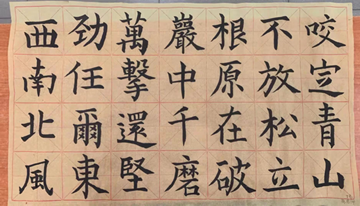 咬定青山
不放松立
根原在破
巖中千磨
萬擊還堅
劲任爾東
西南北風